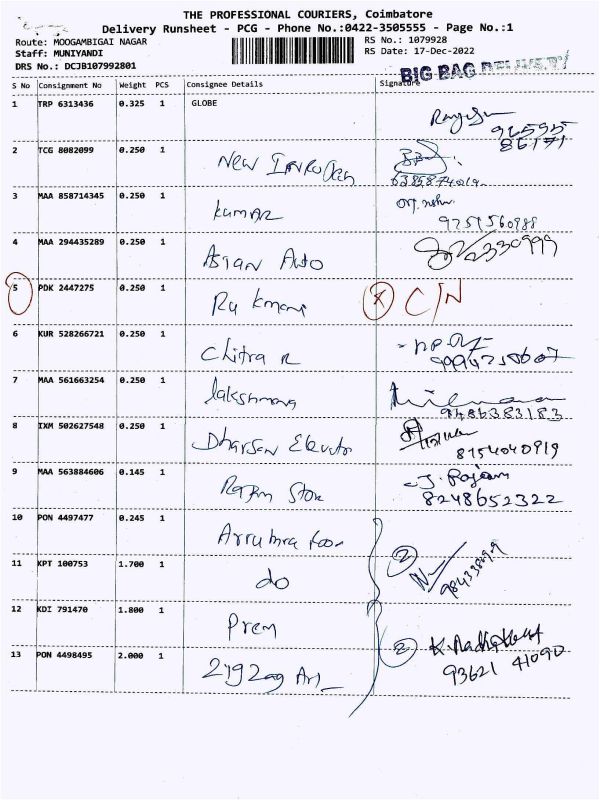 THE PROFESSIONAL COURIERS, Coimbatore
Delivery Runsheet - PCG - Phone No.:0422-3505555 - Page No.:1
Route: MOOGAMBIGAI NAGAR RS No.: 1079928
Staff: MUNIYANDI RS Date: 17-Dec-2022
DRS No.: DCJB107992801
BIG BAG DELIVERY
S No Consignment No Weight PCS Consignee Details Signature
1 TRP 6313436 0.325 1 GLOBE
96595
86171
2 TCG 8082099 0.250 1 New
3 MAA 858714345 0.250 1 Kumar
9751560988
4 MAA 294435289 0.250 1 Asian Auto
5 PDK 2447275 0.250 1 Rukmani C/N
6 KUR 528266721 0.250 1 Chitra R
7 MAA 561663254 0.250 1 Lakshmana
9486383183
8 IXM 502627548 0.250 1 Dharsan Elevator
8154040919
9 MAA 563884606 0.145 1 Rajam Store J. Rajam
8248652322
10 PON 4497477 0.245 1
2
11 KPT 100753 1.700 1 do
12 KDI 791470 1.800 1 Prem
2
13 PON 4498495 2.000 1 Zig Zag Art
93621 41090